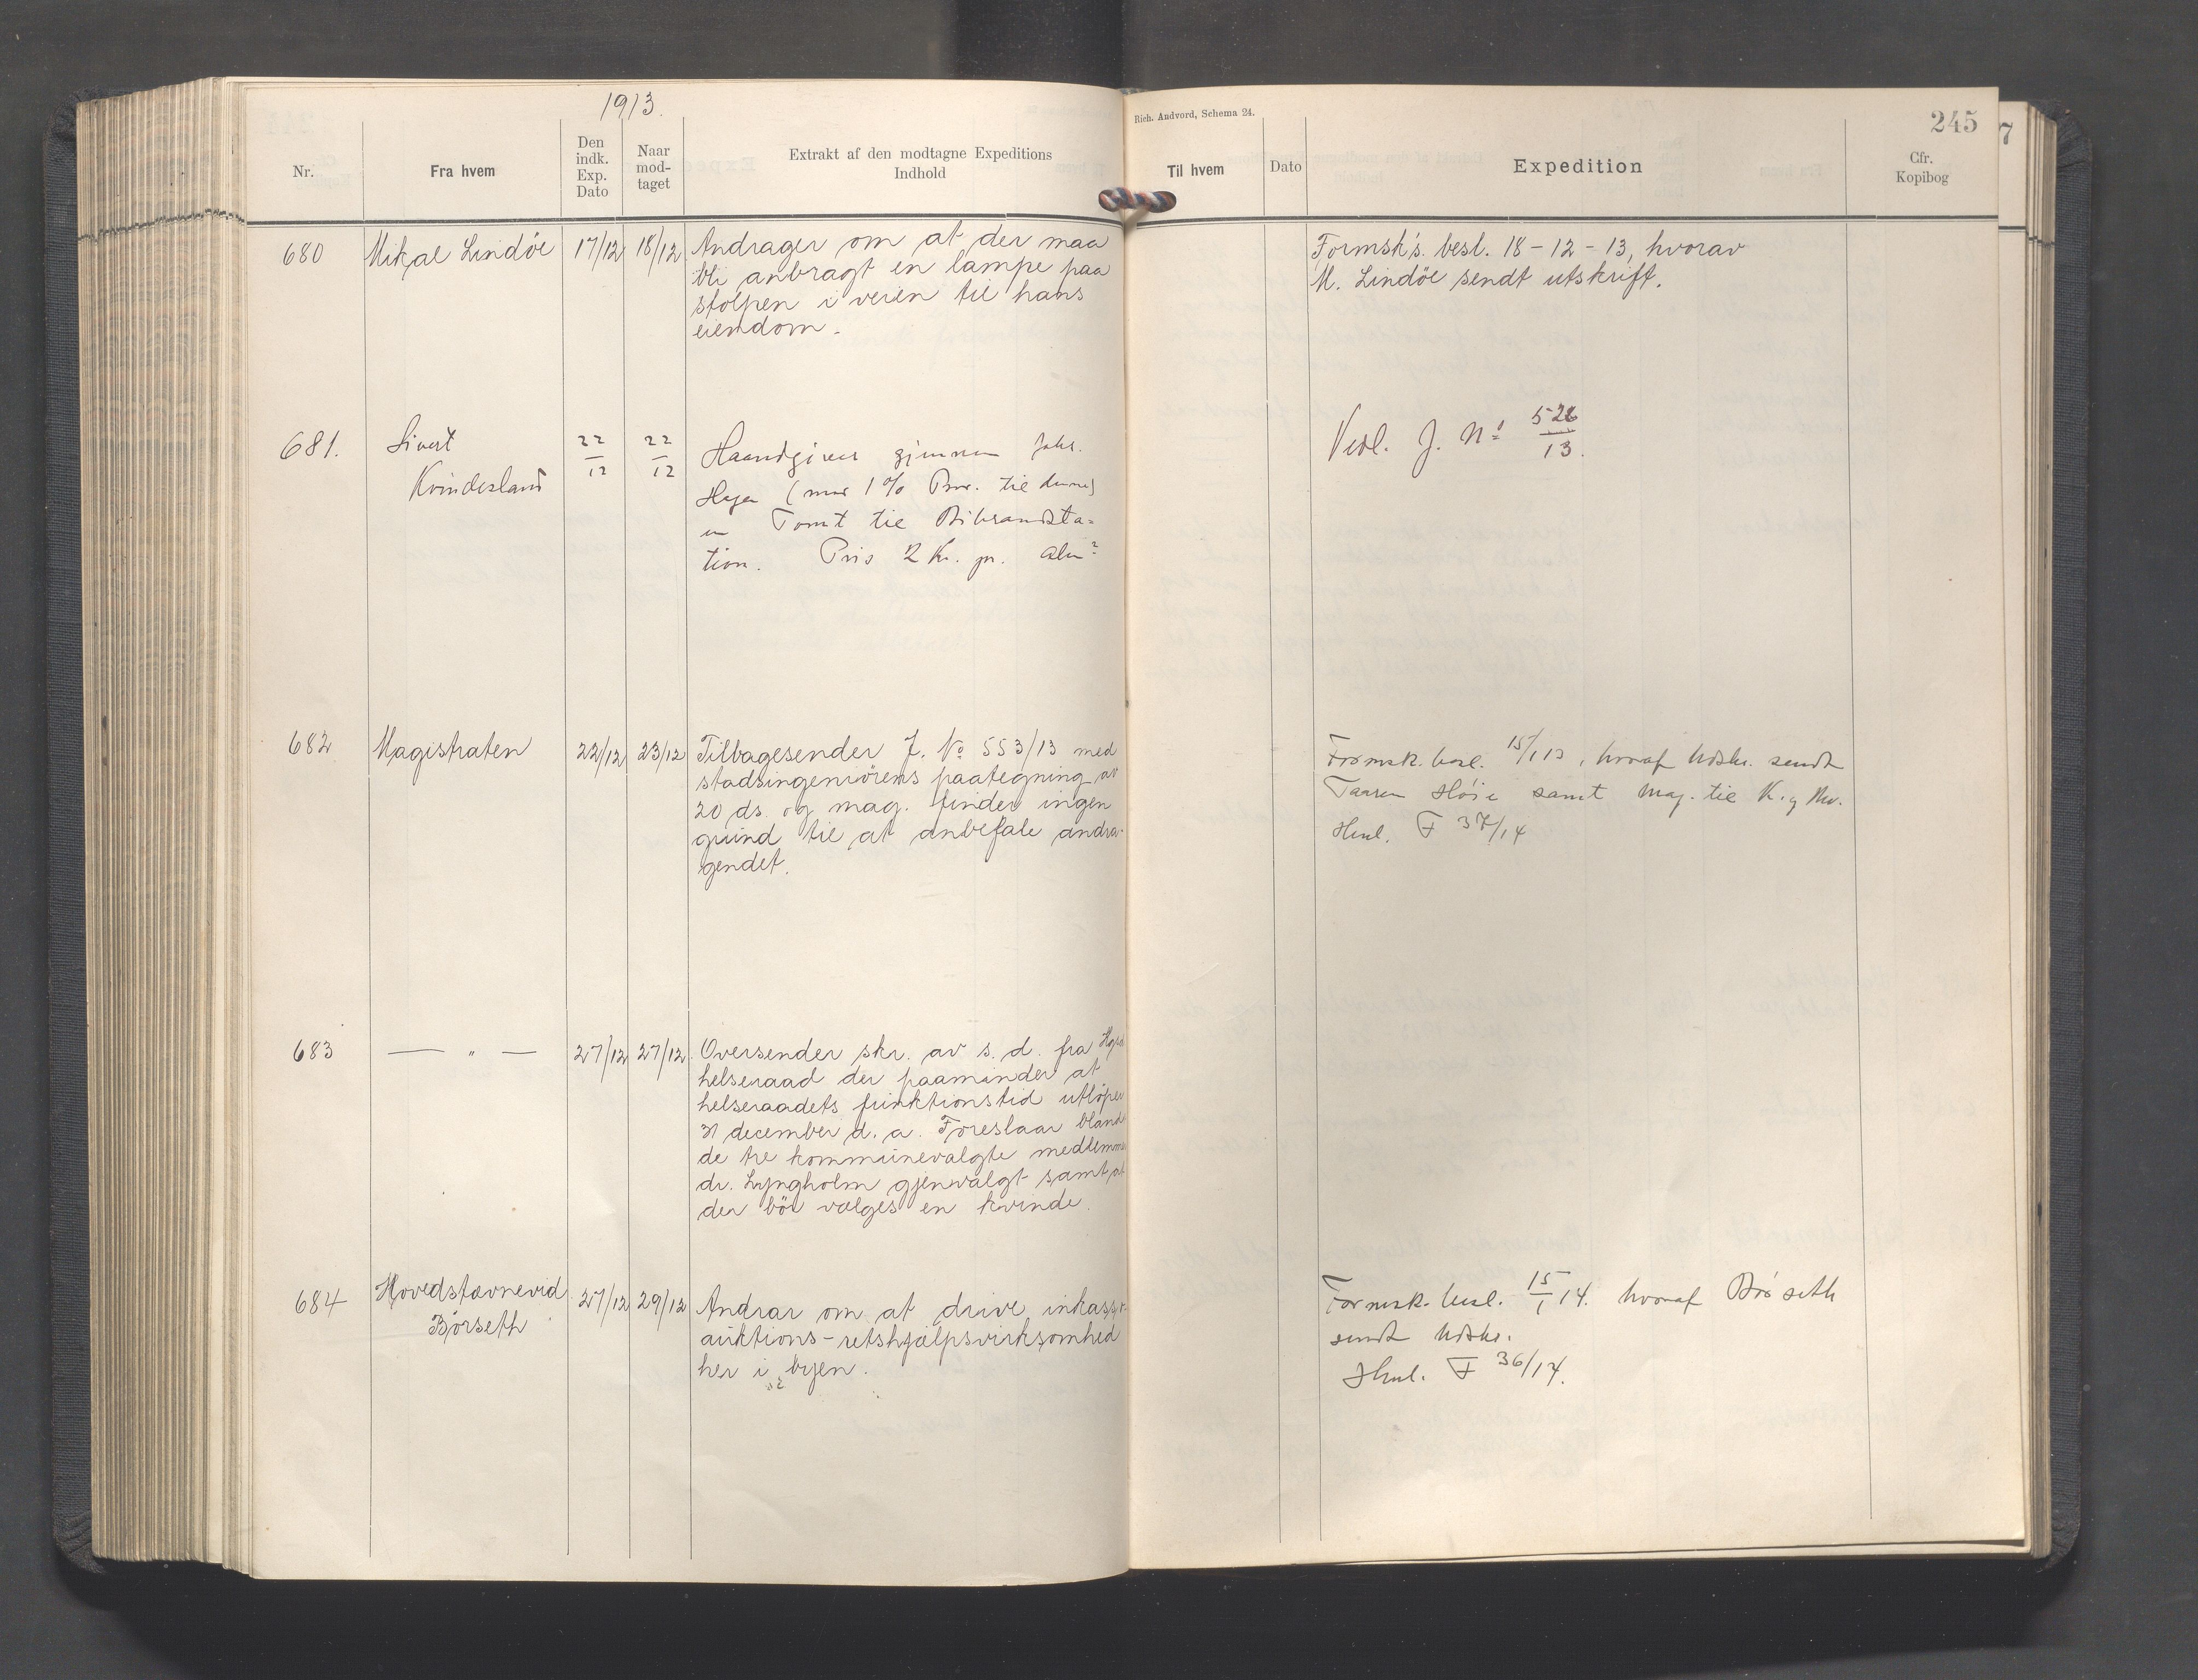 1913.
Nr.
Fra hvem
Den indk. Exp. Dato
Naar mod-taget
Extrakt af den modtagne Expeditions
Indhold
Rich. Andvord, Schema 24.
245
7
Til hvem
Dato
Expedition
Cfr.
Kopibog
680 Mikal Lindöe 17/12 18/12 Andrager om at der maa
bli anbragt en lampe paa
stolpen i veien til hans
eiendom.
Formsk's. besl. 18-12-13, hvorav
M. Lindöe sendt utskrift.
681. Sivert
Kvindesland
22/12 22/12
Haandgiver gjennem
(mod 1% Prov. til denne)
en Tomt til Bibrandsta=
tion. Pris 2 Kr. pr. Alen²
Vedl. J. No 526/13.
682 Magistraten 22/12 23/12 Tilbagesender J. No 553/13 med
stadsingeniörens paategning av
20 ds. og mag. finder ingen
grund til at anbefale andra-
gendet.
Formsk. besl. 15/1 13, hvoraf Udskr. sendt
samt Mag. til K. og
Henl. F 37/14
683 — " — 27/12 27/12 Oversender skr. av s. d. fra
helseraad der paaminder at
helseraadets funktionstid utlöper
31 december d. a. Foreslaar blandt
de tre kommunevalgte medlemmer
dr. Lyngholm gjenvalgt samt at
der bör vælges en kvinde.
684 Hovedstævnevid
Börseth
27/12 29/12 Andrar om at drive inkasso-
auktions-retshjælpsvirksomhed
her i byen.
Formsk. besl. 15/1 14. hvoraf Börseth
sendt Udskr.
Henl. F 36/14.